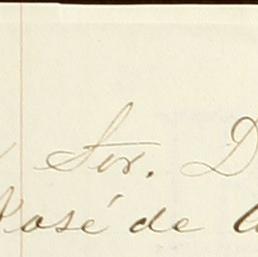 Sor. D
José de